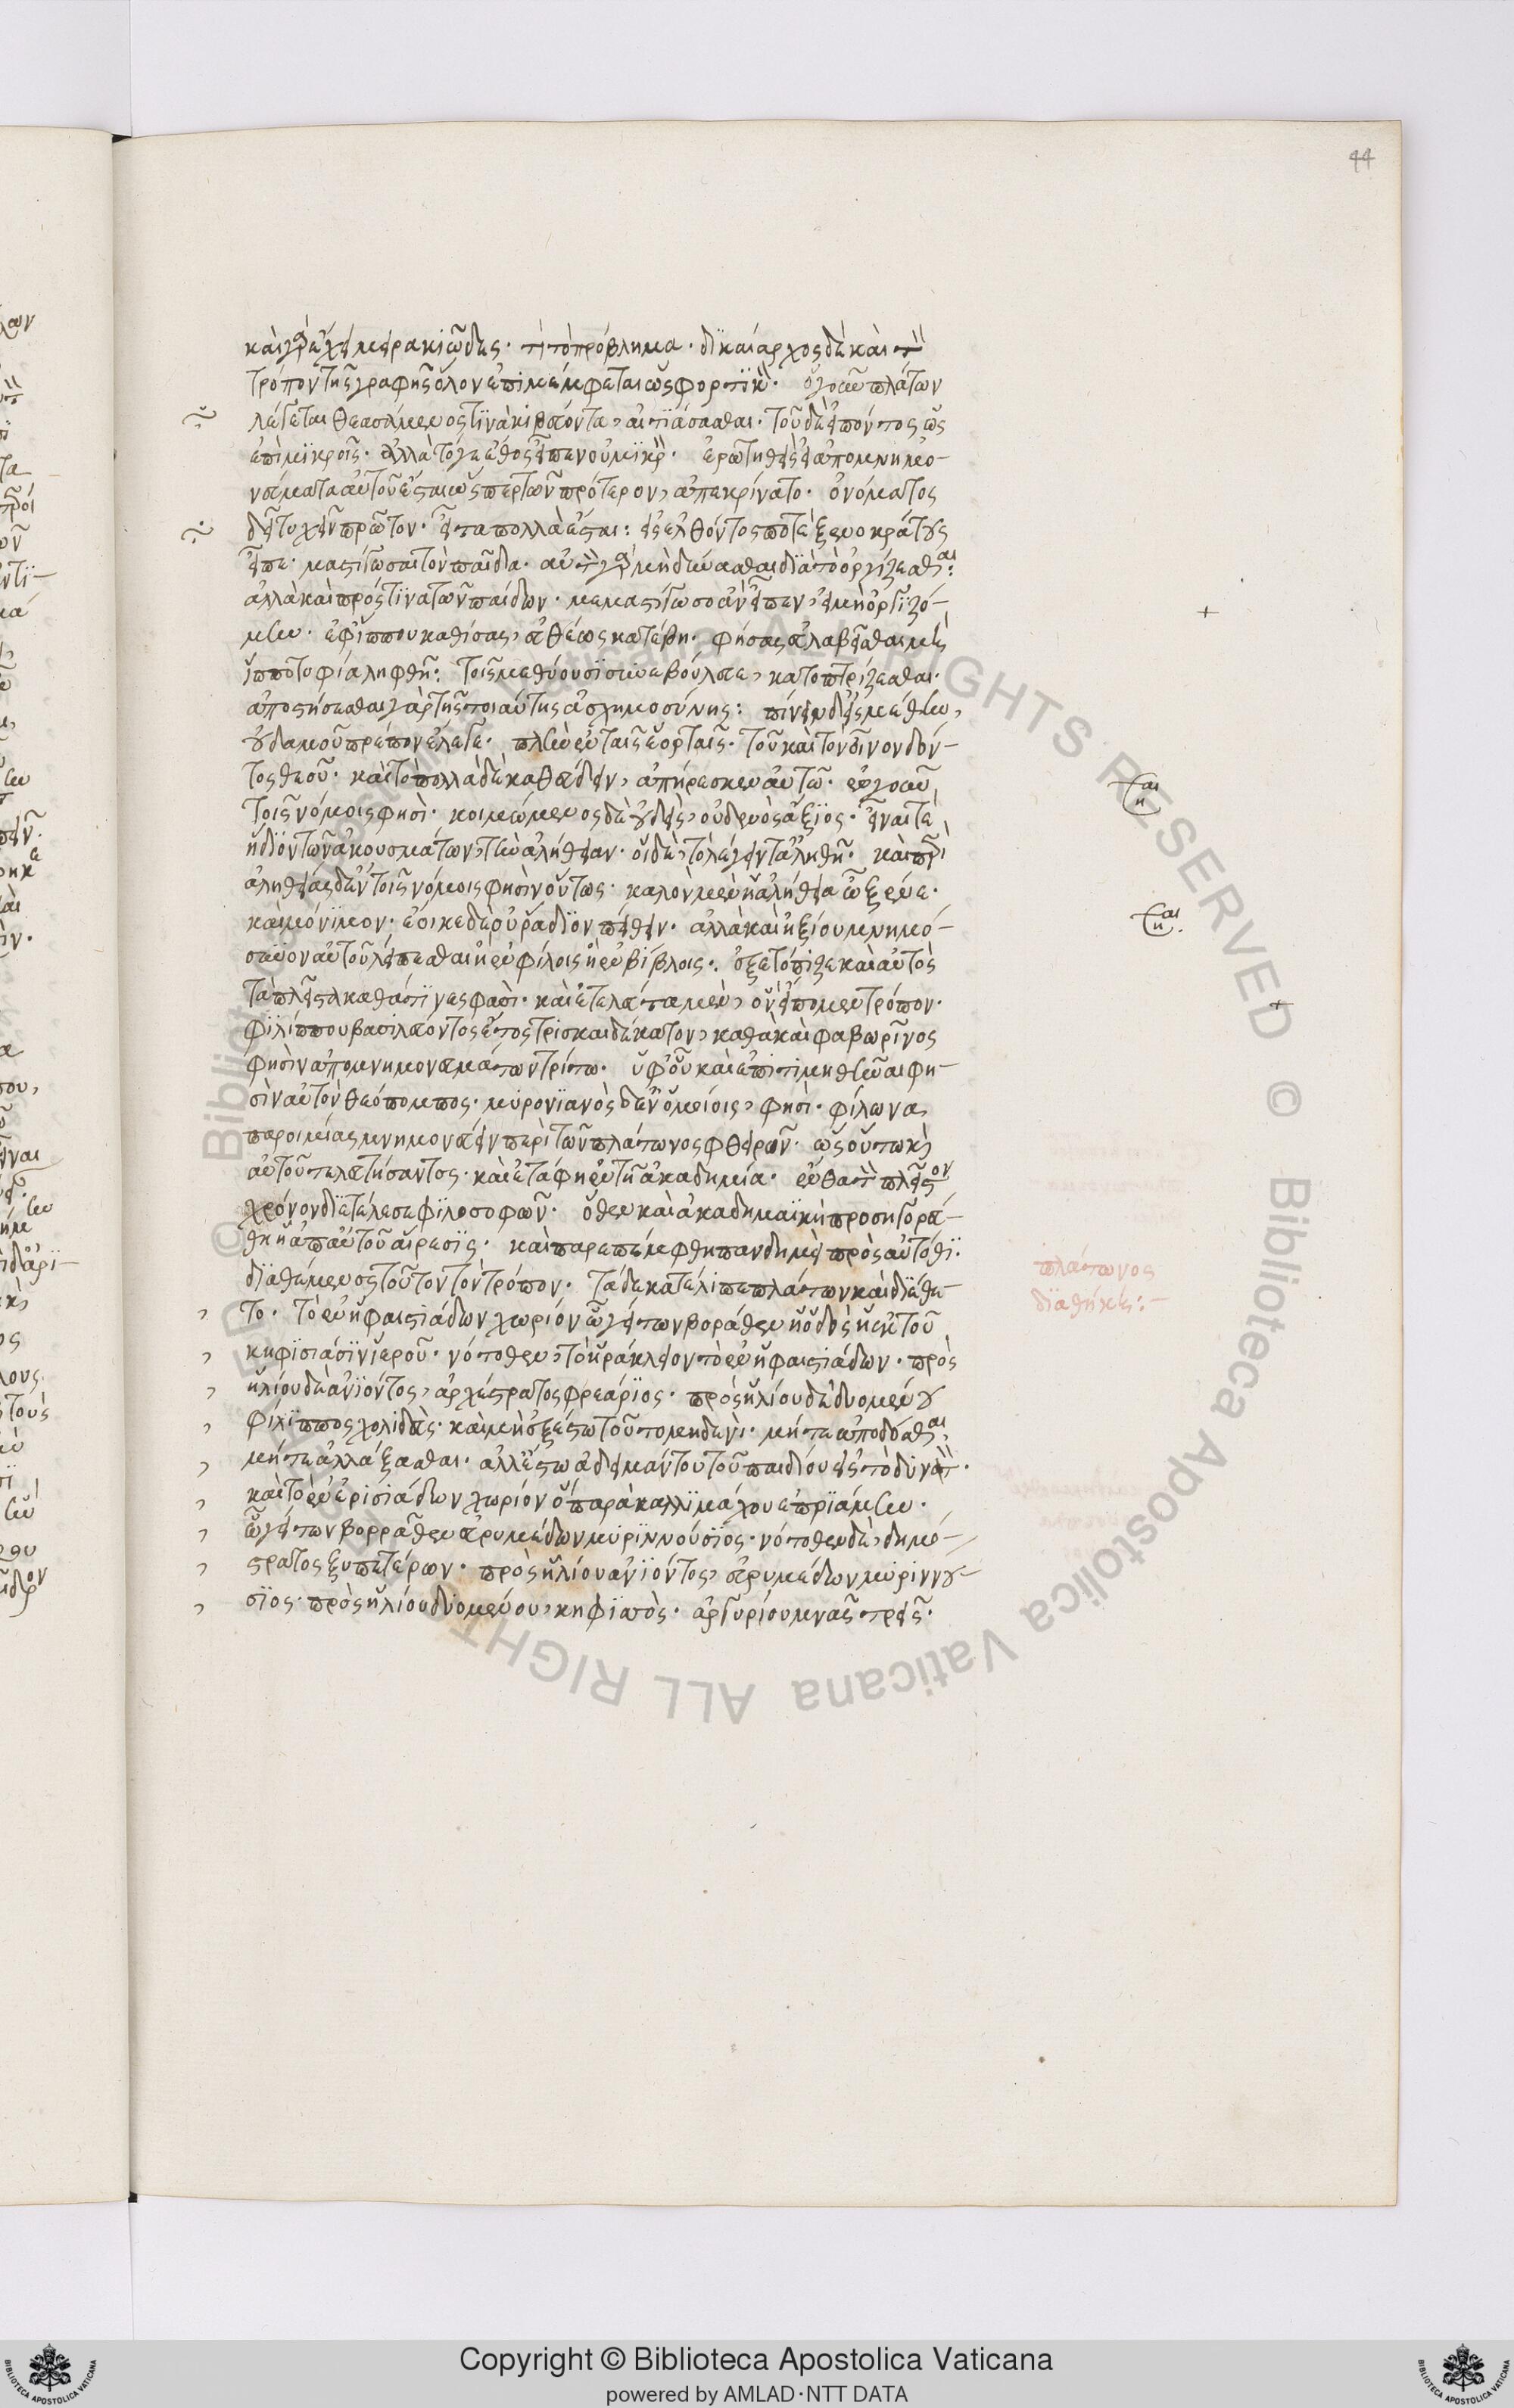 44
καὶ γὰρ ἔχει μειρακιῶδες τι τὸ πρόβλημα. δικαίαρχος δὲ καὶ τὸν
τρόπον τῆς γραφῆς ὅλον ἐπιμέμφεται ὡς φορτικόν. ὁ γοῦν πλάτων
λέγεται θεασάμενός τινα κυβεύοντα, αἰτιάσασθαι. τοῦ δὲ εἰπόντος ὡς
ἐπὶ μικροῖς. ἀλλὰ τό γε ἔθος εἶπεν οὐ μικρόν. ἐρωτηθεὶς εἰ ἀπομνημο-
νεύματα αὐτοῦ ἔσται ὥσπερ τῶν πρότερον, ἀπεκρίνατο. ὀνόματος
δεῖ τυχεῖν πρῶτον. εἶτα πολλὰ ἔσται: εἰσελθόντος ποτὲ ξενοκράτους
εἶπε. μαστιγῶσαι τὸν παῖδα. αὐτὸν γὰρ μὴ δύνασθαι διὰ τὸ ὀργίζεσθαι:
ἀλλὰ καὶ πρός τινα τῶν παίδων. μεμαστίγωσο ἂν εἶπεν, εἰ μὴ ὀργιζό-
μην. ἐφ' ἵππου καθίσας, εὐθέως κατέβη. φήσας εὐλαβεῖσθαι μὴ
ἱπποτυφίᾳ ληφθῇ: τοῖς μεθύουσι συνεβούλευε, κατοπτρίζεσθαι.
ἀποστήσεσθαι γὰρ τῆς τοιαύτης ἀσχημοσύνης: πίνειν δ' εἰς μέθην,
οὐδαμοῦ πρέπον ἔλεγε. πλὴν ἐν ταῖς ἑορταῖς. τοῦ καὶ τὸν οἶνον δόν-
τος θεοῦ. καὶ τὸ πολλὰ δὲ καθεύδειν, ἀπήρεσκεν αὐτῷ. ἐν γοῦν
τοῖς νόμοις φησὶ. κοιμώμενος δὲ οὐδεὶς, οὐδενὸς ἄξιος. εἶναί τε
ἥδιον τῶν ἀκουσμάτων, τὴν ἀλήθειαν. οἱ δὲ, τὸ λέγειν τἀληθῆ. καὶ περὶ
ἀληθείας δ' ἐν τοῖς νόμοις φησὶν οὕτως. καλὸν μὲν ἡ ἀλήθεια ὦ ξένε.
καὶ μόνιμον. ἔοικε δὲ οὐ ῥάδιον πείθειν. ἀλλὰ καὶ ἠξίου μνημό-
συνον αὐτοῦ λείπεσθαι ἢ ἐν φίλοις ἢ ἐν βίβλοις. ἐξετόπιζε καὶ αὐτὸς
τὰ πλεῖστα καθά τινες φασὶ. καὶ ἐτελεύτα μὲν, ὃν εἴπομεν τρόπον.
φιλίππου βασιλεύοντος ἔτος τρισκαιδέκατον, καθὰ καὶ φαβωρῖνος
φησὶν ἀπομνημονευμάτων τρίτῳ. ὑφ' οὗ καὶ ἐπιτιμηθῆναι φη-
σὶν αὐτὸν θεόπομπος. μυρονιανὸς δ' ἐν ὁμοίοις, φησὶ. φίλωνα
παροιμίας μνημονεύειν περὶ τῶν πλάτωνος φθειρῶν. ὡς οὕτως
αὐτοῦ τελευτήσαντος. καὶ ἐτάφη ἐν τῇ ἀκαδημίᾳ. ἔνθα τὸν πλεῖστον
χρόνον διετέλεσε φιλοσοφῶν. ὅθεν καὶ ἀκαδημαϊκὴ προσηγορεύ-
θη ἡ ἀπ' αὐτοῦ αἵρεσις. καὶ παρεπέμφθη πανδημεὶ πρὸς αὐτόθι.
διαθέμενος τοῦτον τὸν τρόπον. τάδε κατέλιπε πλάτων καὶ διέθε-
το. τὸ ἐν ἡφαιστιάδων χωρίον ᾧ γείτων βορράθεν ἡ ὁδὸς ἡ ἐκ τοῦ
κηφισιᾶσιν ἱεροῦ. νότοθεν, τὸ ἡράκλειον τὸ ἐν ἡφαιστιάδων. πρὸς
ἡλίου δὲ ἀνιόντος, ἀρχέστρατος φρεάριος. πρὸς ἡλίου δὲ δυομένου
φίλιππος χολιδεὺς. καὶ μὴ ἐξέστω τοῦτο μηδενὶ. μήτε ἀποδόσθαι,
μήτε ἀλλάξασθαι. ἀλλ' ἔστω ἀδειμάντου τοῦ παιδίου εἰς τὸ δυνατὸν.
καὶ τὸ ἐν εἰρισιάδων χωρίον ὃ παρὰ καλλιμάχου ἐπριάμην.
ᾧ γείτων βορρᾶθεν εὐρυμέδων μυρινούσιος. νότοθεν δὲ, δημό-
στρατος ξυπεταίρων. πρὸς ἡλίου ἀνιόντος, εὐρυμέδων μυριννού-
σιος. πρὸς ἡλίου δυομένου, κηφισὸς. ἀργυρίου μνᾶς τρεῖς.
πλάτωνος
διαθήκη:-
Copyright © Biblioteca Apostolica Vaticana
powered by AMLAD·NTT DATA